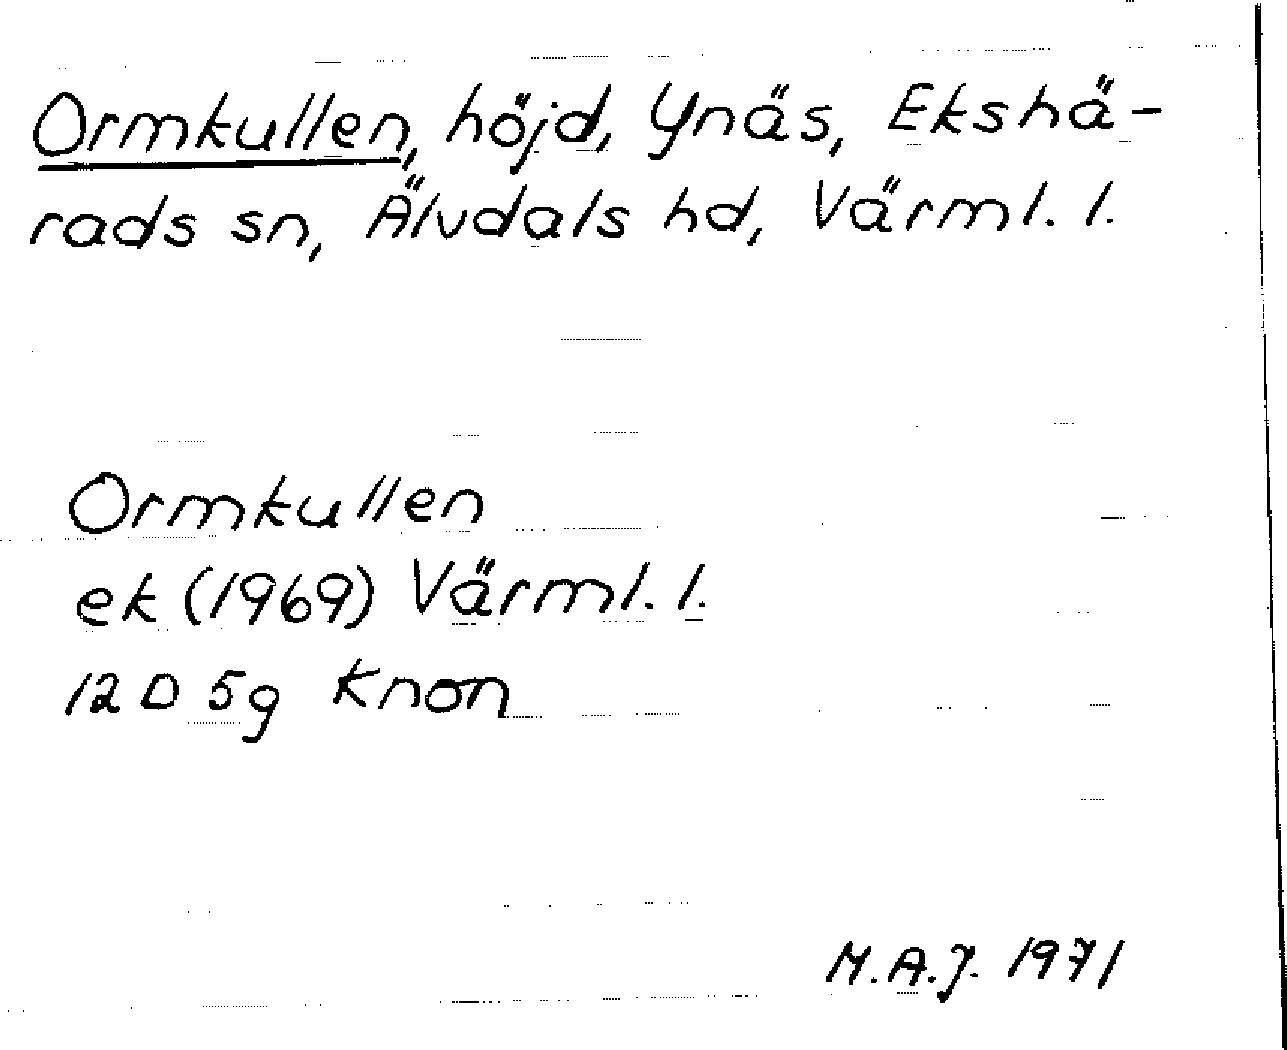 Ormkullen, höjd, Ynäs, Ekshä-
rads sn, Älvdals hd, Värml. l.
Ormkullen
ek (1969) Värml. l.
12 D 5g Knon
M.A.J. 1971